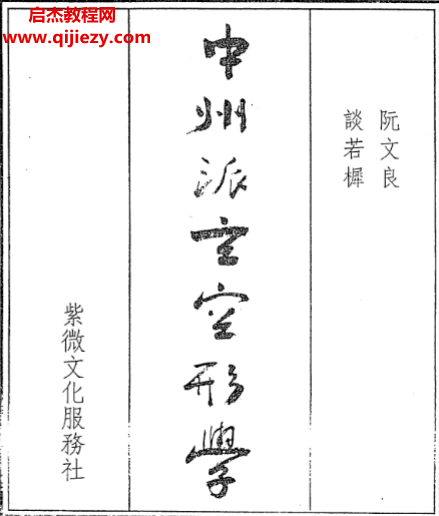 启杰教程网
www.qijiezy.com
阮文良
談若樨
中州派玄空形學
紫微文化服務社